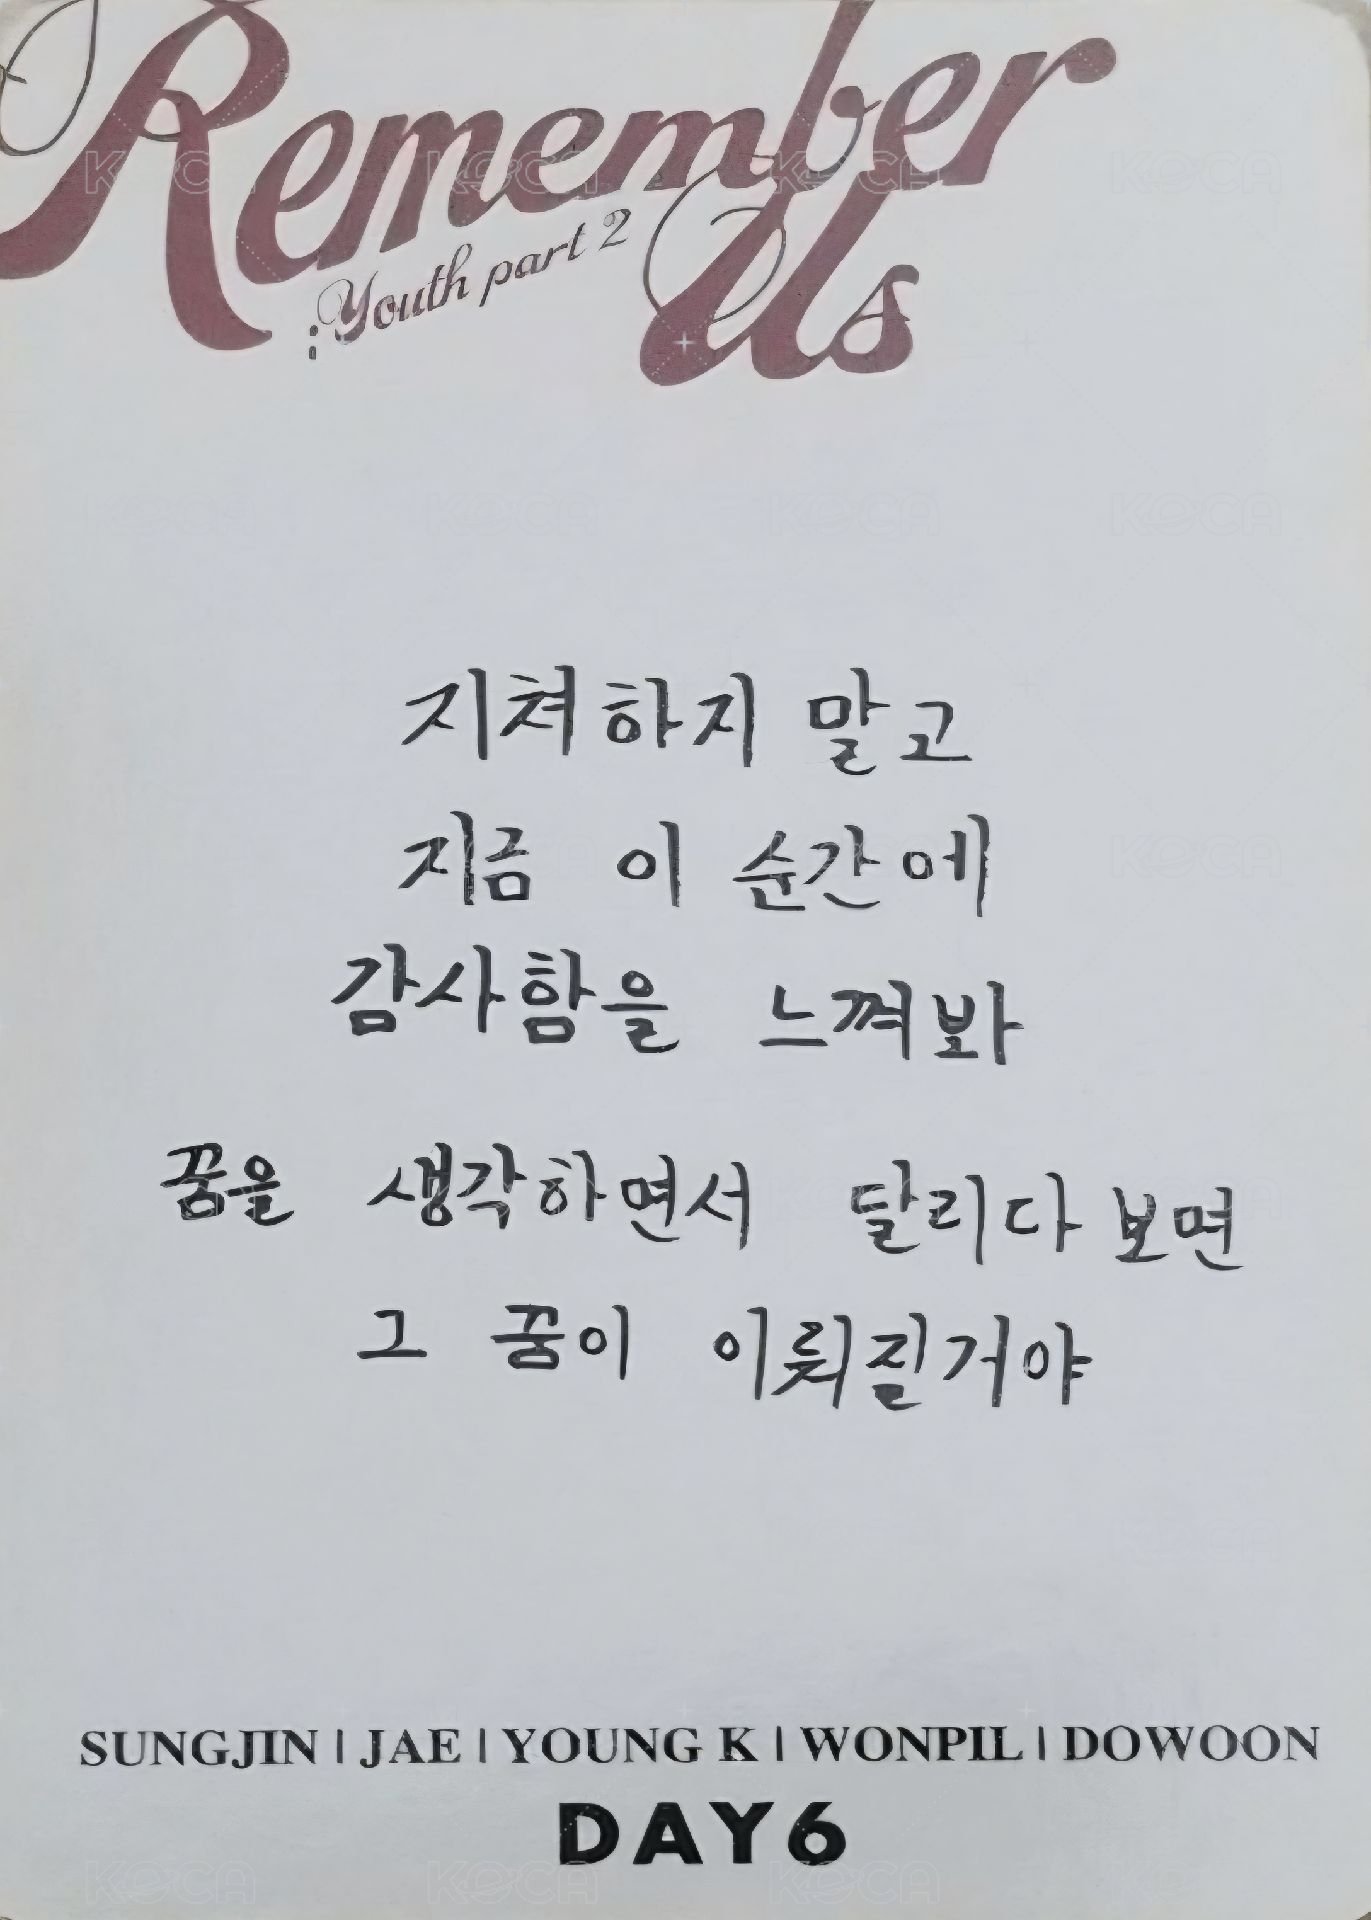 Remember
Us
: Youth part 2
지쳐하지 말고
지금 이 순간에
감사함을 느껴봐
꿈을 생각하면서 달리다보면
그 꿈이 이뤄질거야
SUNGJIN | JAE | YOUNG K | WONPIL | DOWOON
DAY6
KOCA